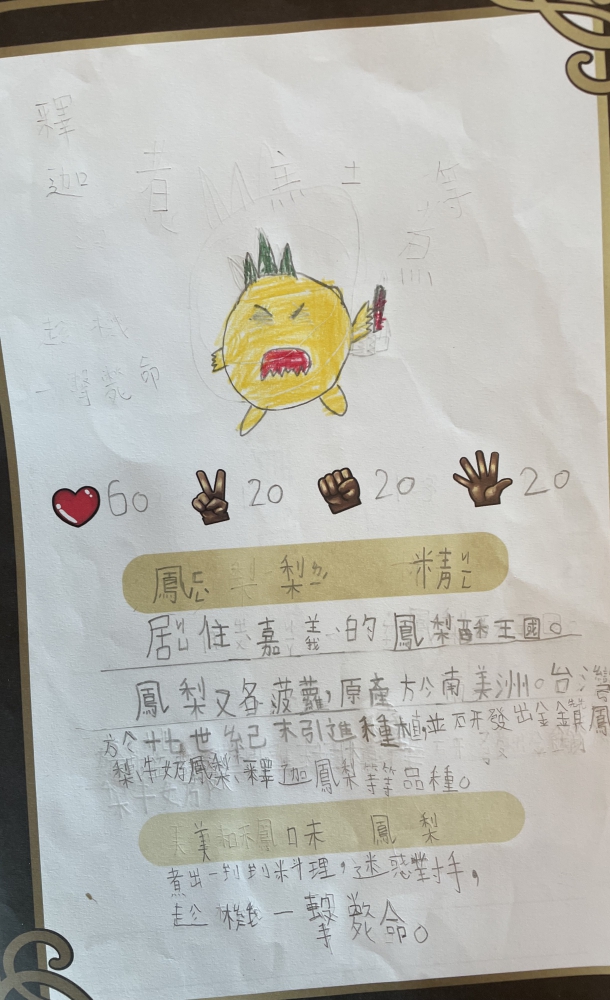 釋
迦
煮 無 土 等
魚
趁 機
一擊斃命
60 20 20 20
鳳 梨 精
居住嘉義的鳳梨酥王國。
鳳梨又名菠蘿,原產於南美洲。台灣
於十七世紀末引進種植,並研發出金鑽鳳
梨、牛奶鳳梨、釋迦鳳梨等等品種。
美味鳳梨
煮出一到到料理,迷惑對手,
趁機一擊斃命。